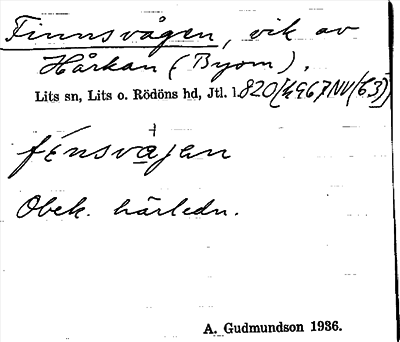 Finnsvågen, vik av
Hårkan (Byom).
Lits sn, Lits o. Rödöns hd, Jtl. l. 820 [h967NV(63)]
fénsvajen
Obek. härledn.
A. Gudmundson 1936.